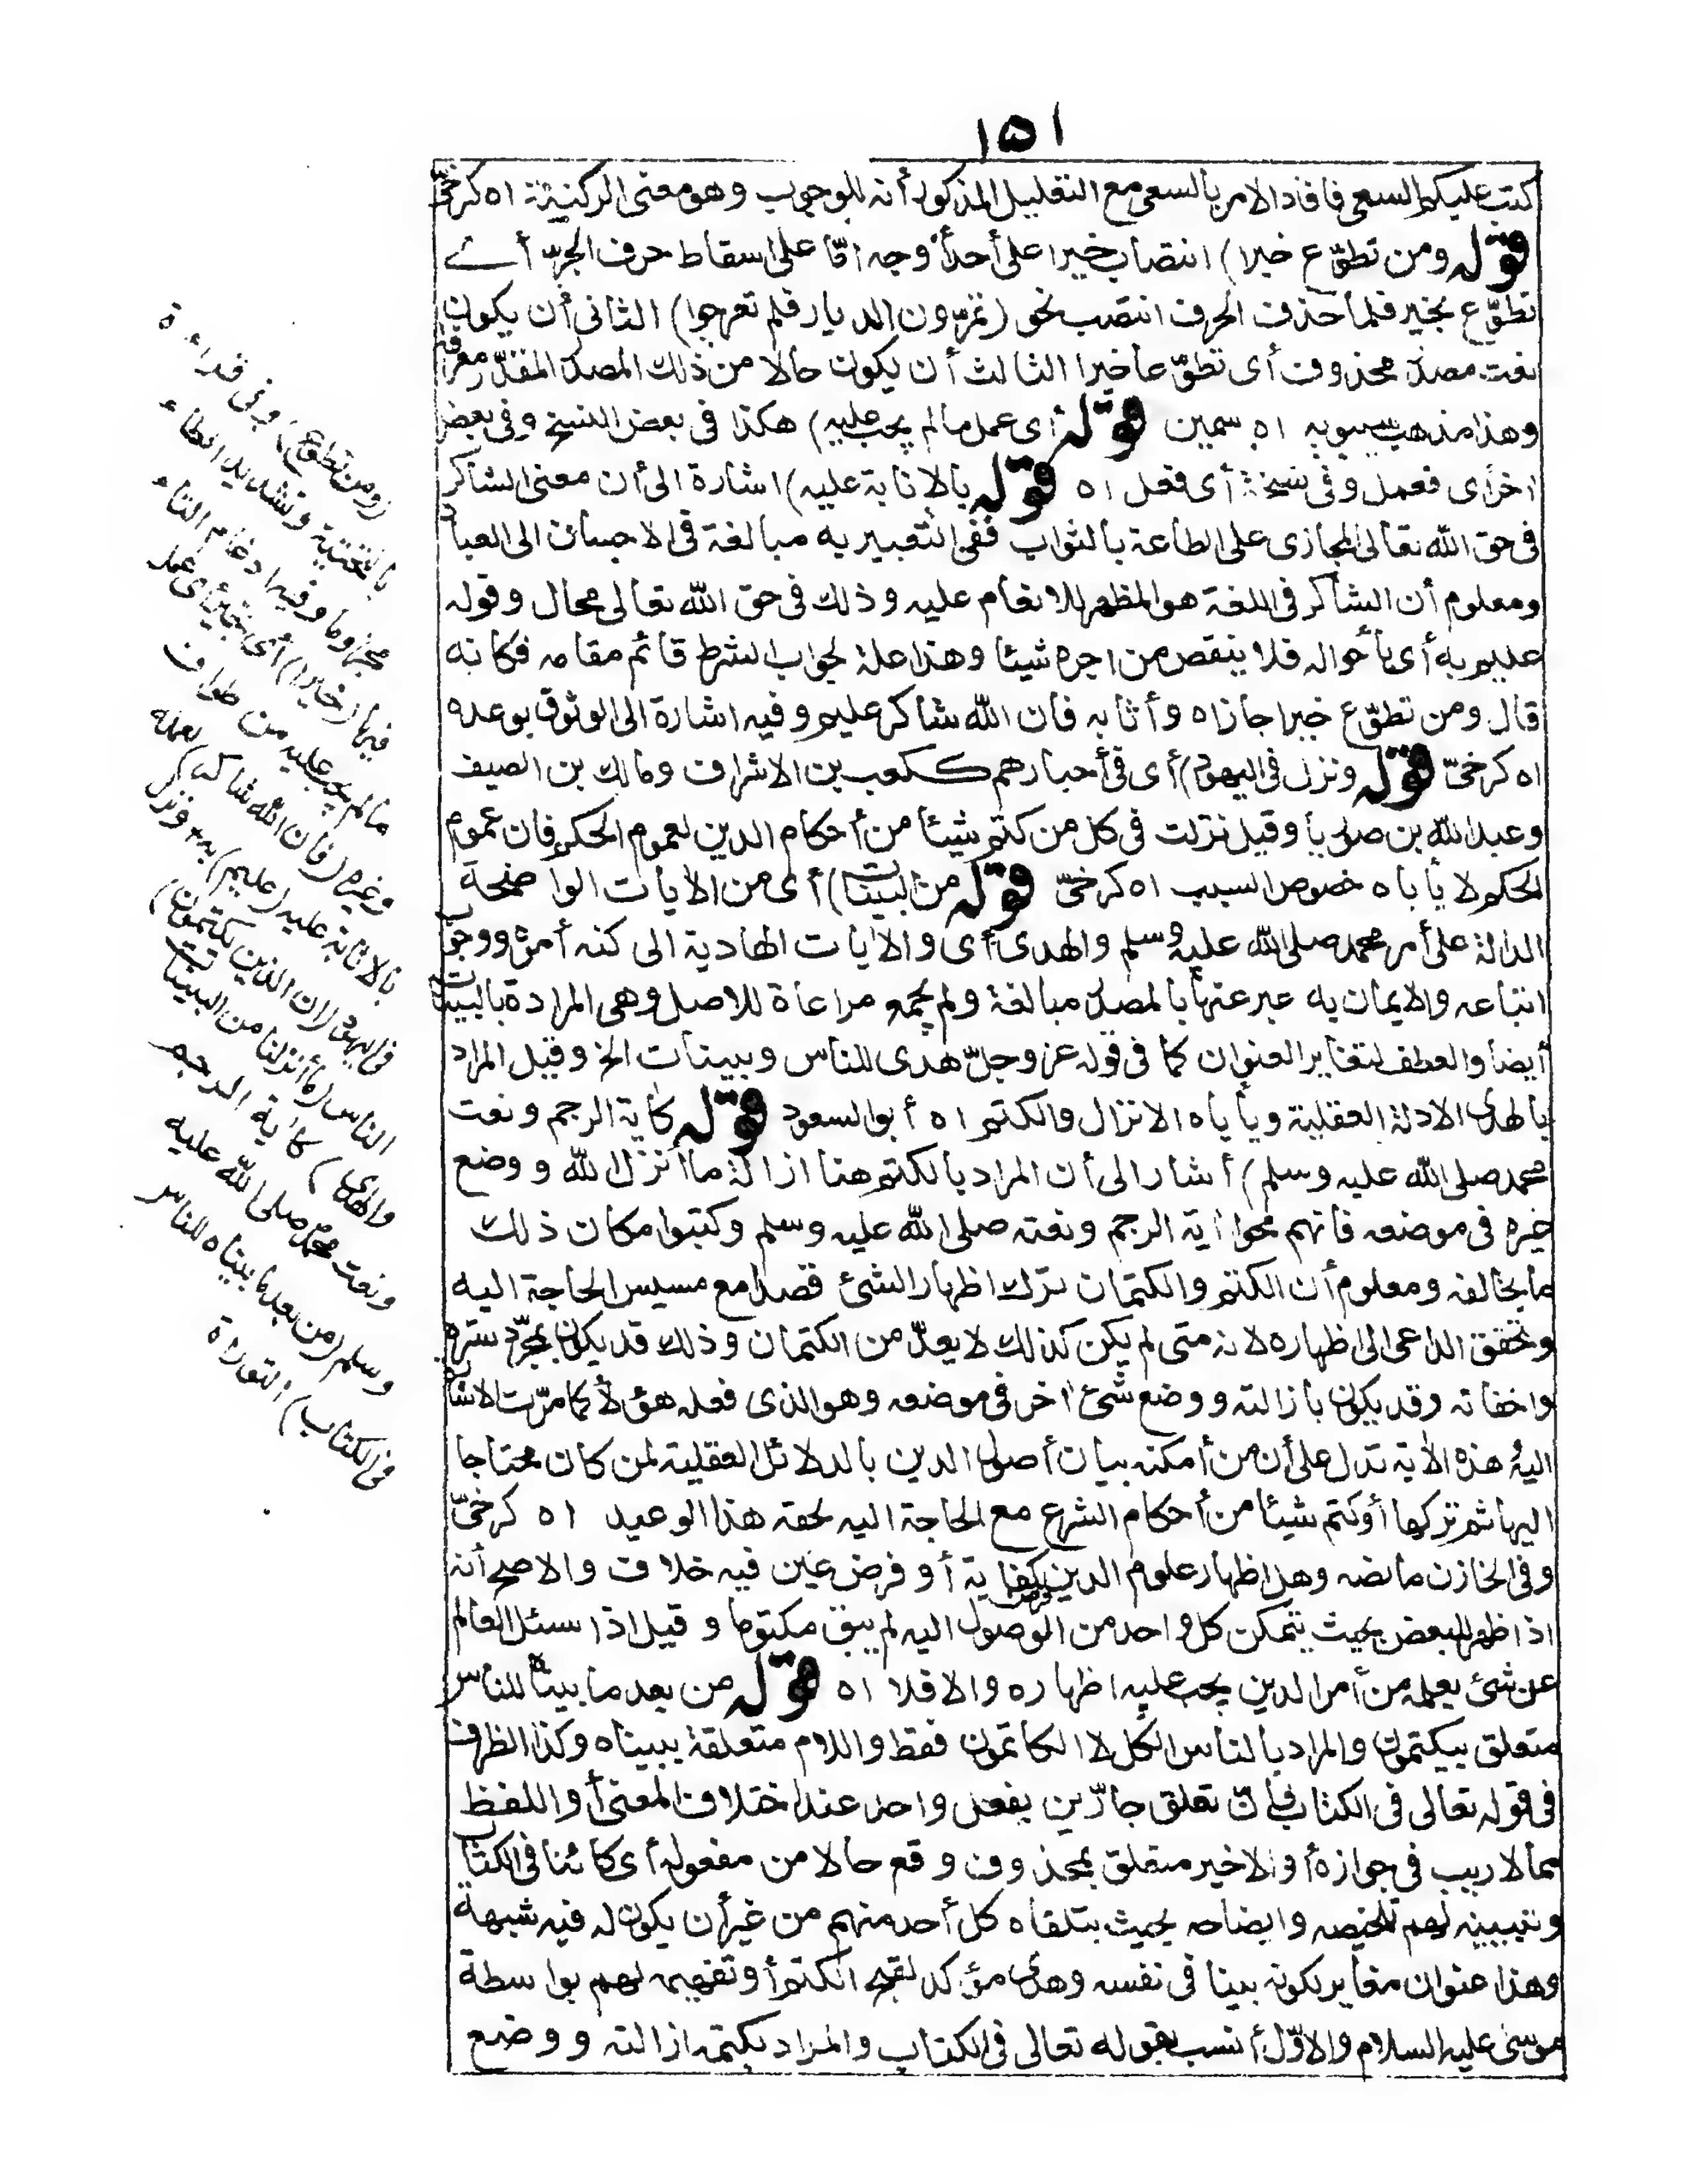 ١٥١
كتب عليكم السعى فافاد الامر بالسعى مع التعليل المذكور أنه للوجوب وهو معنى الركنية اه كرخىّ
قوله ومن تطوّع خيرا) انتصاب خيرا على أحد أوجه امّا على اسقاط حرف الجرّ أى
تطوّع بخير فلما حذف الحرف انتصب نحو (تمرّون الديار فلم تعوجوا) الثانى أن يكون
نعت مصدر محذوف أى تطوّعا خيرا الثالث أن يكون حالا من ذلك المصدر المقدّر معرفة
وهذا مذهب سيبويه اه سمين قوله أى عمل مالم يجب عليه) هكذا فى بعض النسخ وفى بعض
اخرأى فعمل وفى نسخة أى فعل اه قوله بالاثابة عليه) اشارة الى أن معنى الشاكر
فى حق الله تعالى المجازى على الطاعة بالثواب ففى التعبير به مبالغة فى الاحسان الى العباد
ومعلوم أن الشاكر فى اللغة هو المظهر للانعام عليه وذلك فى حق الله تعالى محال وقوله
عليم به أى بأحواله فلا ينقص من اجره شيئا وهذا علة لجواب الشرط قائم مقامه فكانه
قال ومن تطوّع خيرا جازاه وأثابه فان الله شاكر عليم وفيه اشارة الى الوثوق بوعده
اه كرخىّ قوله ونزل فى اليهود) أى فى أحبارهم ككعب بن الاشراف ومالك بن الصيف
وعبد الله بن صوريا وقيل نزلت فى كل من كتم شيئا من أحكام الدين لعموم الحكم فان عموم
الحكم لا يأباه خصوص السبب اه كرخىّ قوله من البينات) أى من الآيات الواضحة
الدالة على أمر محمد صلى الله عليه وسلم والهدى أى والآيات الهادية الى كنه أمره ووجوب
اتباعه والايمان به عبر عنها بالمصدر مبالغة ولم يجمع مراعاة للاصل وهى المرادة بالبينات
أيضا والعطف لتغاير العنوان كما فى قوله عز وجلّ هدى للناس وبينات الخ وقيل المراد
بالهدى الادلة العقلية ويأباه الانزال والكتم اه أبو السعود قوله كآية الرجم ونعت
محمد صلى الله عليه وسلم) أشار الى أن المراد بالكتم هنا ازالة ما أنزل الله ووضع
غيره فى موضعه فانهم محوا آية الرجم ونعته صلى الله عليه وسلم وكتبوا مكان ذلك
ما يخالفه ومعلوم أن الكتم والكتمان ترك اظهار الشئ قصدا مع مسيس الحاجة اليه
وتحقق الداعى الى اظهاره لانه متى لم يكن كذلك لا يعدّ من الكتمان وذلك قد يكون بمجرّد ستره
واخفائه وقد يكون بازالته ووضع شئ اخر فى موضعه وهو الذى فعله هؤلاء كما مرّت الاشارة
اليه هذه الآية تدل على أن من أمكنه بيان أصول الدين بالدلائل العقلية لمن كان محتاجا
اليها ثم تركها أو كتم شيئا من أحكام الشرع مع الحاجة اليه لحقه هذا الوعيد اه كرخىّ
وفى الخازن ما نصه وهل اظهار علوم الدين فرض كفاية أو فرض عين فيه خلاف والاصح أنه
اذا ظهر للبعض بحيث يتمكن كل واحد من الوصول اليه لم يبق مكتوما وقيل اذا سئل العالم
عن شئ يعلمه من أمر الدين يجب عليه اظهاره والا فلا اه قوله من بعد ما بيناه للناس
متعلق بيكتمون والمراد بالناس الكل لا الكاتمون فقط واللام متعلقة ببيناه وكذا الظرف
فى قوله تعالى فى الكتاب فانّ تعلق جارّين بفعل واحد عند اختلاف المعنى أو اللفظ
مما لا ريب فى جوازه أو الاخير متعلق بمحذوف وقع حالا من مفعوله أى كائنا فى الكتاب
وتبيينه لهم تلخيصه وايضاحه بحيث يتلقاه كل أحد منهم من غير أن يكون له فيه شبهة
وهذا عنوان مغاير لكونه بينا فى نفسه وهدى مؤكد لقبح الكتم أو تفهيمه لهم بواسطة
موسى عليه السلام والاوّل أنسب بقوله تعالى فى الكتاب والمراد بكتمه ازالته ووضع
(ومن تطوع) وفى قراءة
بالتحتية وتشديد الطاء
مجزوما وفيه ادغام التاء
فيها (خيرا) أى بخير أى عمل
مالم يجب عليه من طواف
وغيره (فان الله شاكر) لعمله
بالاثابة عليه (عليم) به ونزل
فى اليهود (ان الذين يكتمون)
الناس (ما أنزلنا من البينات
والهدى) كآية الرجم
ونعت محمد صلى الله عليه
وسلم (من بعد ما بيناه للناس
فى الكتاب) التوراة